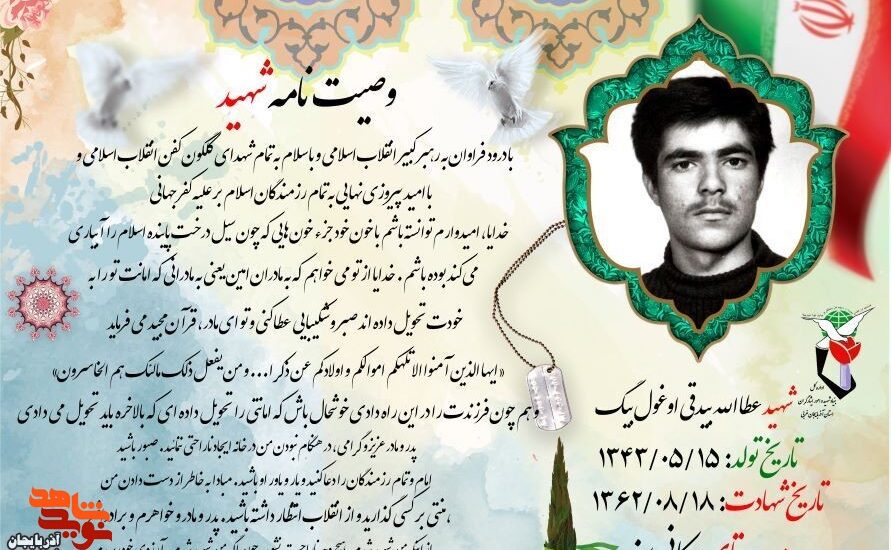 وصیت نامه شهید
بادرود فراوان به رهبر کبیر انقلاب اسلامی و باسلام به تمام شهدای گلگون کفن انقلاب اسلامی و
با امید پیروزی نهایی به تمام رزمندگان اسلام بر علیه کفر جهانی
خدایا، امیدوارم توانسته باشم با خون خود جزء خون هایی که چون سیل درخت پاینده اسلام را آبیاری
می کند بوده باشم . خدایا از تو می خواهم که به مادران امین یعنی به مادرانی که امانت تو را به
خودت تحویل داده اند صبر و شکیبایی عطا کنی و تو ای مادر، قرآن مجید می فرماید
«ایها الذین آمنوا لاتلهکم اموالکم و اولادکم عن ذکر ا... و من یفعل ذلک مالنک هم الخاسرون»
و هم چون فرزندت را در این راه دادی خوشحال باش که امانتی را تحویل داده ای که بالاخره باید تحویل می دادی
پدر و مادر عزیز و گرامی، در هنگام نبودن من در خانه ایجاد ناراحتی ننمائید. صبور باشید
امام و تمام رزمندگان را دعا کنید و یار و یاور او باشید. مبادا به خاطر از دست دادن من
منتی بر کسی گذارید و از انقلاب انتظار داشته باشید، پدر و مادر و خواهرم و براد
شهید عطاالله بیدقی اوغول بیگ
تاریخ تولد: ۱۳۴۳/۰۵/۱۵
تاریخ شهادت: ۱۳۶۲/۰۸/۱۸
اداره کل
بنیاد شهید و امور ایثارگران
استان آذربایجان غربی
نوید شاهد
آذربایجان